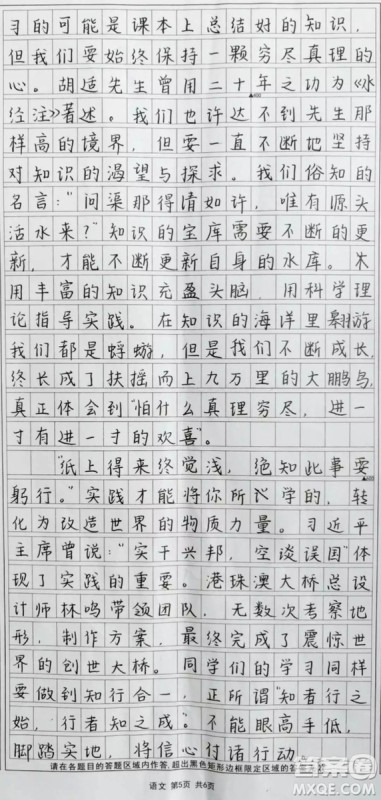 习的可能是课本上总结好的知识，
但我们要始终保持一颗穷尽真理的
心。胡适先生曾用二十年之功为《水
经注》著述。我们也许达不到先生那
样高的境界，但要一直不断地坚持
对知识的渴望与探求。我们俗知的
名言："问渠那得清如许，唯有源头
活水来？"知识的宝库需要不断的更
新，才能不断更新自身的水库。
用丰富的知识充盈头脑，用科学理
论指导实践。在知识的海洋里翱游
我们都是蜉蝣，但是我们不断成长，
终长成了扶摇而上九万里的大鹏鸟，
真正体会到"怕什么真理穷尽，进一
寸有进一寸的欢喜"。
"纸上得来终觉浅，绝知此事要
躬行。"实践才能将你所学的，转
化为改造世界的物质力量。习近平
主席曾说："实干兴邦，空谈误国"体
现了实践的重要。港珠澳大桥总设
计师林鸣带领团队，无数次考察地
形，制作方案，最终完成了震惊世
界的创世大桥。同学们的学习同样
要做到知行合一，正所谓"知者行之
始，行者知之成"。不能眼高手低，
脚踏实地，将信心付诸行动
请在各题目的答题区域内作答，超出黑色矩形边框限定区域的答
语文 第5页 共6页
答案圈